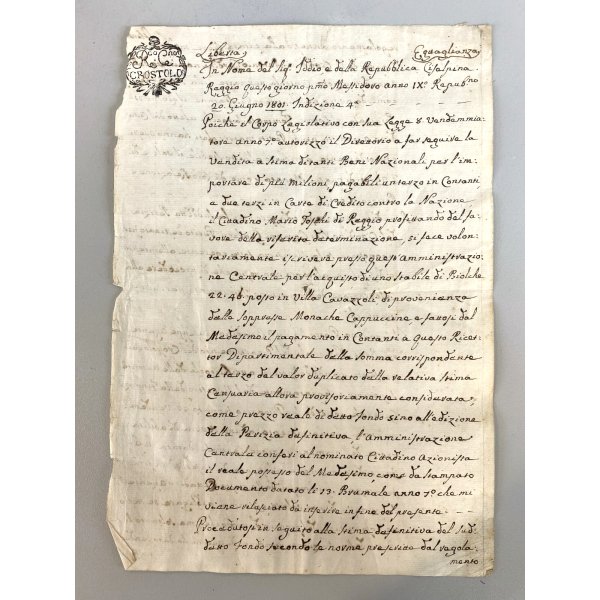 CROSTOLO
Libertà, Eguaglianza,
In Nome del Sig.r Iddio e della Repubblica Cisalpina
Reggio questo giorno p.mo Messidoro anno IX.o Repub.no
20. Giugno 1801. Indizione 4.a
Poichè il Corpo Legislativo con sua Legge 8 Vendemmia-
tore anno 7.o autorizzò il Direttorio a far seguire la
Vendita a stima di tanti Beni Nazionali per l'im-
portare di più milioni pagabili un terzo in Contanti,
e due terzi in Carte di Credito contro la Nazione
il Cittadino Mario di Reggio profittando del fa-
vore della riferita determinazione, si fece volon-
tariamente iscrivere presso quest'Amministrazio-
ne Centrale per l'acquisto di uno stabile di Biolche
22.46 posto in Villa Cavazzoli di provenienza
dalle soppresse Monache Cappuccine, e fattosi dal
Medesimo il pagamento in Contanti a questo Ricet-
tor Dipartimentale della somma corrispondente
al terzo del valor duplicato dalla relativa stima
Censuaria allora provisoriamente considerata,
come prezzo reale di detto fondo sino all'edizione
della Perizia definitiva, l'Amministrazione
Centrale conferì al nominato Cittadino Azionista
il reale possesso del Medesimo, come da stampato
Documento datato li 13. Brumale anno 7.o che mi
viene rilasciato da inserire in fine del presente
Procedutosi in seguito alla stima definitiva del sud-
detto fondo secondo le norme prescritte dal regola-
mento